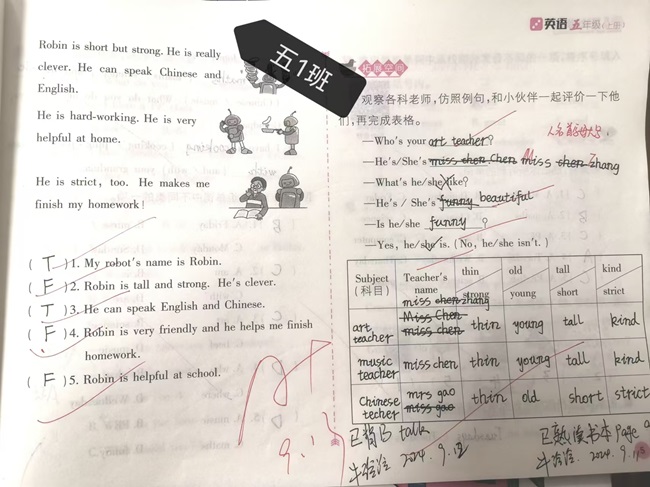 英语 五年级(上册)
五1班
Robin is short but strong. He is really
clever. He can speak Chinese and
English.
He is hard-working. He is very
helpful at home.
He is strict, too. He makes me
finish my homework!
( T )1. My robot's name is Robin.
( F )2. Robin is tall and strong. He's clever.
( T )3. He can speak English and Chinese.
( F )4. Robin is very friendly and he helps me finish
homework.
( F )5. Robin is helpful at school.
A+
9.13
拓展空间
观察各科老师,仿照例句,和小伙伴一起评价一下他
们,再完成表格。
—Who's your art teacher?
—He's/She's miss chen Chen miss chen Zhang
—What's he/she like?
—He's / She's funny beautiful
—Is he/she funny ?
—Yes, he/she is. (No, he/she isn't.)
Subject (科目) Teacher's name thin strong old young tall short kind strict
miss chen zhang
art teacher Miss Chen miss chen thin young tall kind
music teacher miss chen thin young tall kind
Chinese techer mrs gao miss gao thin old short strict
已背B talk
2024.9.12
已熟读书本 Page
2024.9